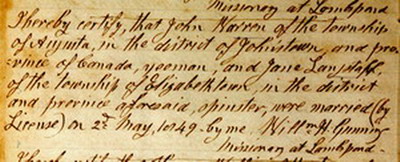 Missionary at Lombpard
I hereby certify, that John Warren of the township
of Augusta, in the district of Johnstown, and pro-
vince of Canada, yeoman, and Jane Langstaff,
of the township of Elizabethtown, in the district
and province aforesaid, spinster, were married (by
License) on 2d May, 1849. by me, Willm H. Gunning
Missionary at Lombpard.